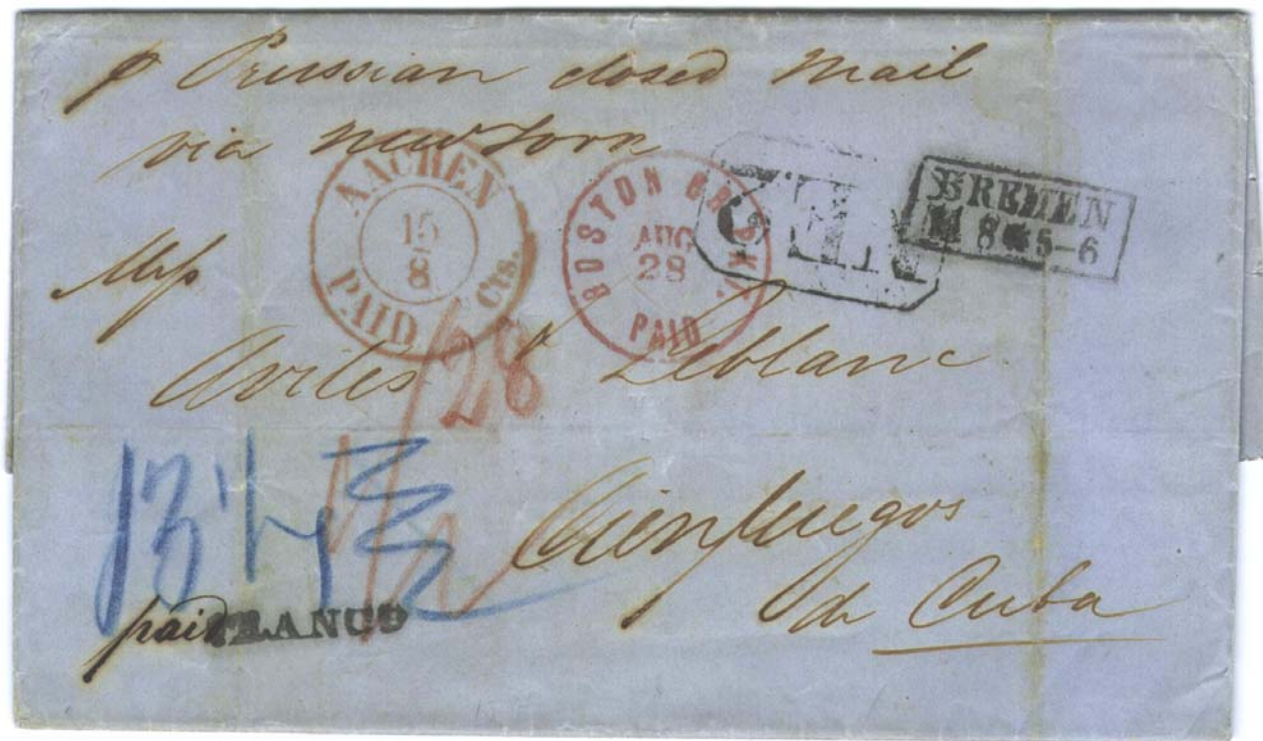 p Prussian closed Mail
via New York
AACHEN
15
8
PAID Cts.
BOSTON BR. PKT.
AUG
28
PAID
BREMEN
8 5-6
Avilés & Leblanc
28
Cienfuegos
de Cuba
paid
FRANCO